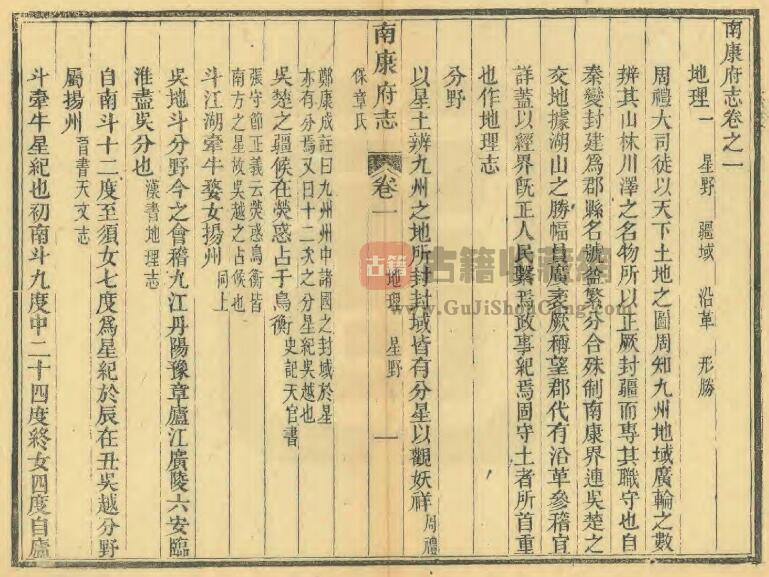 南康府志卷之一
地理一 星野 疆域 沿革 形勝
周禮大司徒以天下土地之圖周知九州地域廣輪之數
辨其山林川澤之名物所以正厥封疆而專其職守也自
秦變封建爲郡縣名號益繁分合殊制南康界連吳楚之
交地據湖山之勝幅員廣袤厥稱望郡代有沿革參稽宜
詳蓋以經界旣正人民繫焉政事紀焉固守土者所首重
也作地理志
分野
以星土辨九州之地所封封域皆有分星以觀妖祥周禮
保章氏
南康府志 卷一 地理 星野 一
鄭康成註曰九州州中諸國之封域於星
亦有分焉又曰十二次之分星紀吳越也
吳楚之疆候在熒惑占于鳥衡史記天官書
張守節正義云熒惑鳥衡皆
南方之星故吳越之占候也
斗江湖牽牛婺女揚州同上
吳地斗分野今之會稽九江丹陽豫章廬江廣陵六安臨
淮盡吳分也漢書地理志
自南斗十二度至須女七度爲星紀於辰在丑吳越分野
屬揚州晉書天文志
斗牽牛星紀也初南斗九度中二十四度終女四度自廬
古籍 古籍收藏網
www.GuJiShouCang.com